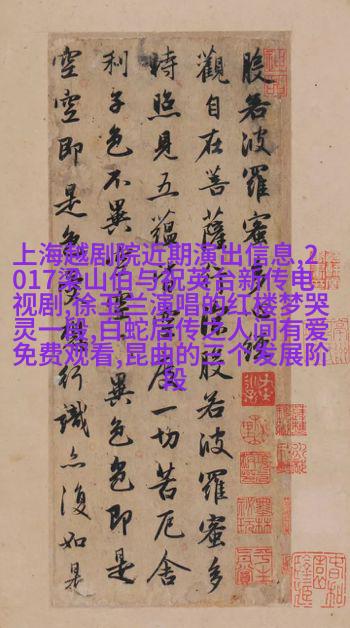 上海越剧院近期演出信息,2
017梁山伯与祝英台新传电
视剧,徐玉兰演唱的红楼梦哭
灵一段,白蛇后传之人间有爱
免费观看,昆曲的三个发展阶
段
般若波羅蜜多心經
觀自在菩薩行深般若波羅蜜多
時照見五蘊皆空度一切苦厄舍
利子色不異空空不異色色即是
空空即是色受想行識亦復如是